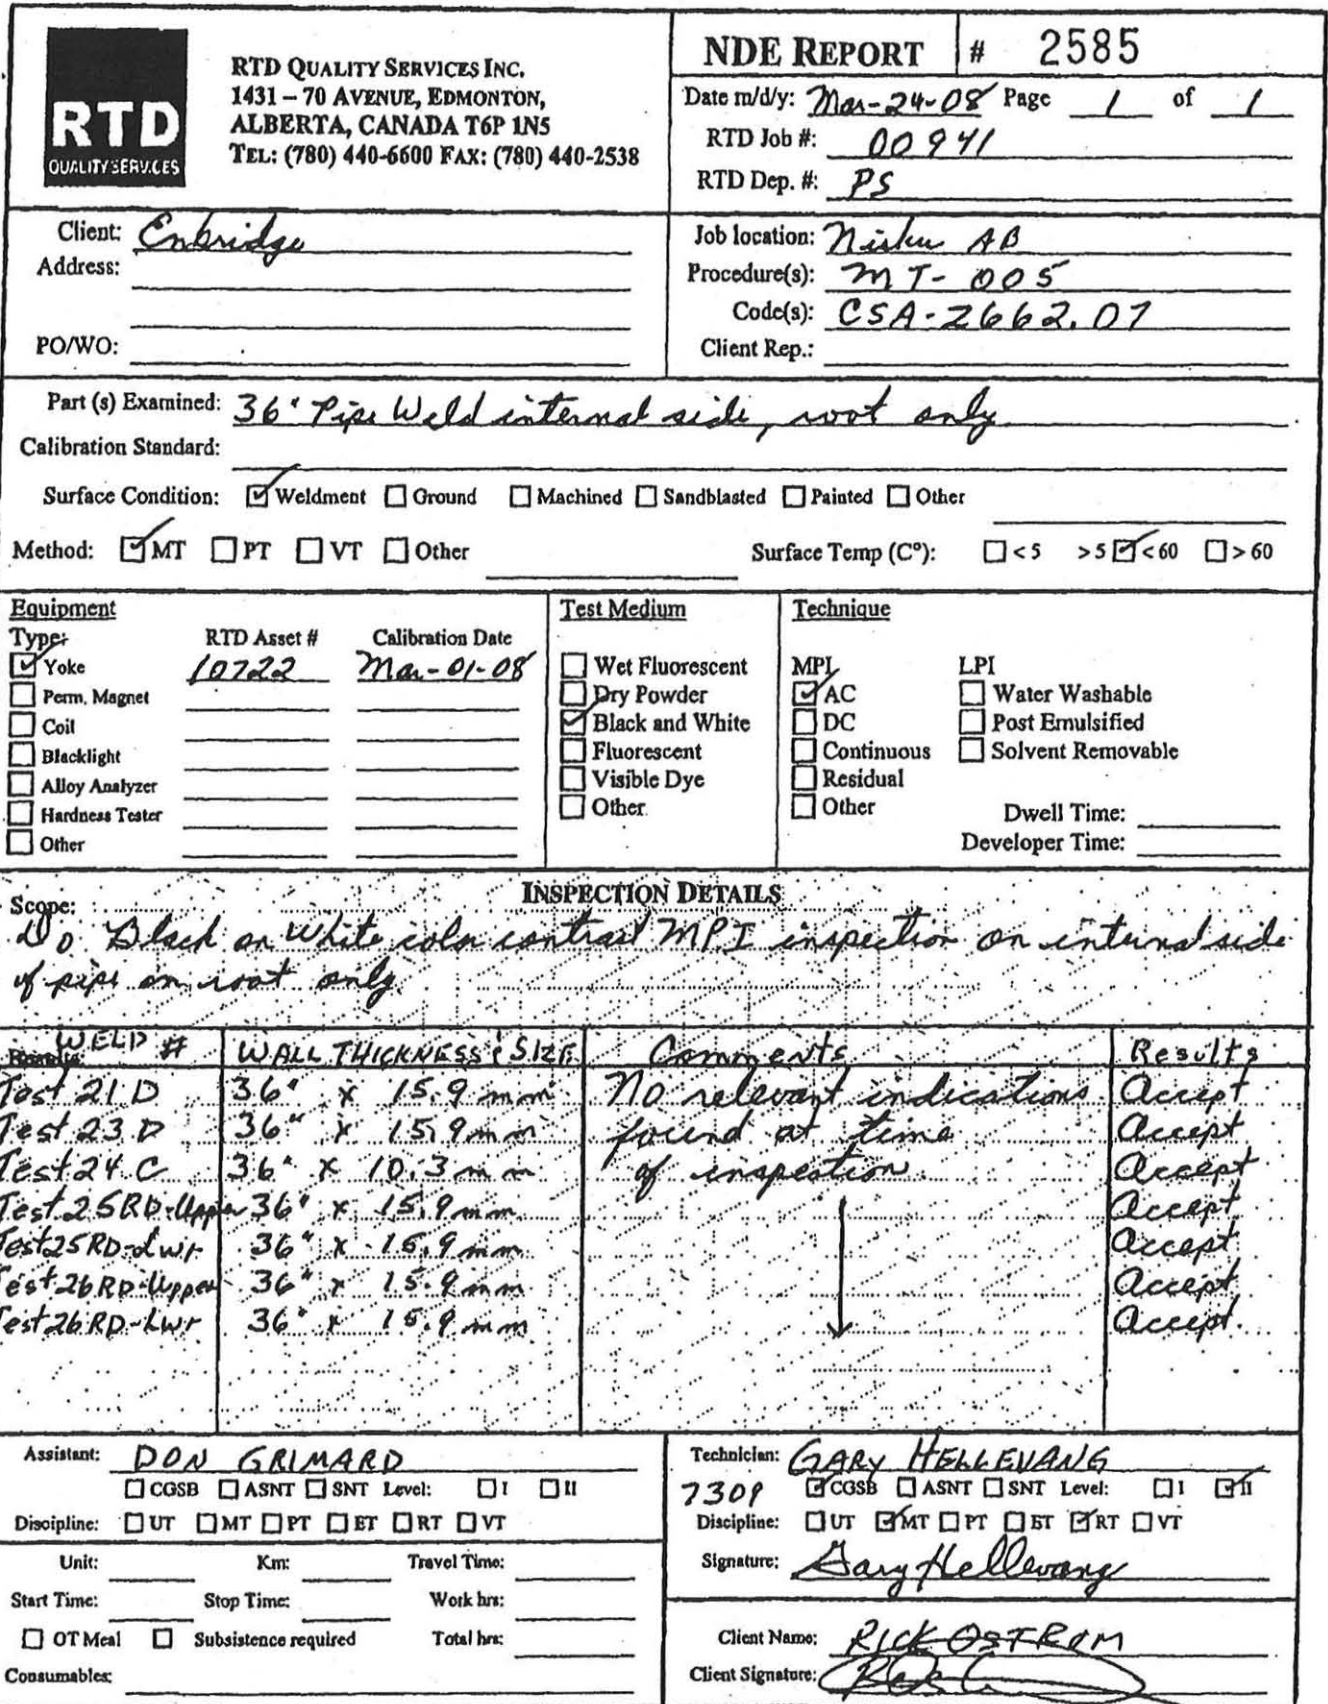 RTD
QUALITY SERVICES
RTD QUALITY SERVICES INC.
1431 – 70 AVENUE, EDMONTON,
ALBERTA, CANADA T6P 1N5
TEL: (780) 440-6600 FAX: (780) 440-2538
NDE REPORT # 2585
Date m/d/y: Mar-24-08 Page 1 of 1
RTD Job #: 00941
RTD Dep. #: PS
Client: Enbridge
Address:
PO/WO:
Job location: Nisku AB
Procedure(s): MT-005
Code(s): CSA-Z662.07
Client Rep.:
Part (s) Examined: 36" Pipe Weld internal side, root only
Calibration Standard:
Surface Condition: ☑ Weldment ☐ Ground ☐ Machined ☐ Sandblasted ☐ Painted ☐ Other
Method: ☑ MT ☐ PT ☐ VT ☐ Other Surface Temp (C°): ☐ < 5 >5 ☑ < 60 ☐ > 60
Equipment
Type: RTD Asset # Calibration Date
☑ Yoke 10722 Mar-01-08
☐ Perm. Magnet
☐ Coil
☐ Blacklight
☐ Alloy Analyzer
☐ Hardness Tester
☐ Other
Test Medium
☐ Wet Fluorescent
☐ Dry Powder
☑ Black and White
☐ Fluorescent
☐ Visible Dye
☐ Other
Technique
MPI
☑ AC
☐ DC
☐ Continuous
☐ Residual
☐ Other
LPI
☐ Water Washable
☐ Post Emulsified
☐ Solvent Removable
Dwell Time:
Developer Time:
INSPECTION DETAILS
Scope:
Do Black on White color contrast MPI inspection on internal side
of pipe on root only.
Results WELD # WALL THICKNESS & SIZE Comments Results
Test 21 D 36" x 15.9 mm No relevant indications Accept
Test 23 D 36" x 15.9 mm found at time Accept
Test 24 C 36" x 10.3 mm of inspection Accept
Test 25RD-Upper 36" x 15.9 mm Accept
Test 25 RD-Lwr 36" x 15.9 mm Accept
Test 26 RD-Upper 36" x 15.9 mm Accept
Test 26 RD-Lwr 36" x 15.9 mm Accept.
Assistant: DON GRIMARD
☐ CGSB ☐ ASNT ☐ SNT Level: ☐ I ☐ II
Discipline: ☐ UT ☐ MT ☐ PT ☐ ET ☐ RT ☐ VT
Unit: Km: Travel Time:
Start Time: Stop Time: Work hrs:
☐ OT Meal ☐ Subsistence required Total hrs:
Consumables:
Technician: GARY HELLEVANG
7309 ☑ CGSB ☐ ASNT ☐ SNT Level: ☐ I ☑ II
Discipline: ☐ UT ☑ MT ☐ PT ☐ ET ☑ RT ☐ VT
Signature: Gary Hellevang
Client Name: RICK OSTROM
Client Signature: